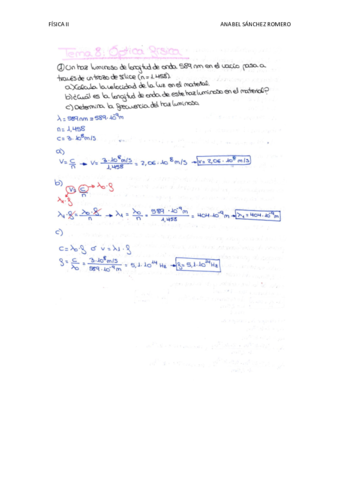 FÍSICA II
ANABEL SÁNCHEZ ROMERO
Tema 8: Óptica física
① Un haz luminoso de longitud de onda 589 nm en el vacío pasa a
través de un trozo de sílice (n = 1,458).
a) Calcula la velocidad de la luz en el material.
b) ¿Cuál es la longitud de onda de este haz luminoso en el material?
c) Determina la frecuencia del haz luminoso.
λ = 589 nm = 589·10⁻⁹ m
n = 1,458
c = 3·10⁸ m/s
a)
v = c/n → v = 3·10⁸ m/s / 1,458 = 2,06·10⁸ m/s → v = 2,06·10⁸ m/s
b)
v = c/n → λ₀·f
λ₁·f
λ₁·f = λ₀·f/n → λ₁ = λ₀/n = 589·10⁻⁹ m / 1,458 = 404·10⁻⁹ m → λ₁ = 404·10⁻⁹ m
c)
c = λ₀·f o v = λ₁·f
f = c/λ₀ = 3·10⁸ m/s / 589·10⁻⁹ m = 5,1·10¹⁴ Hz → f = 5,1·10¹⁴ Hz